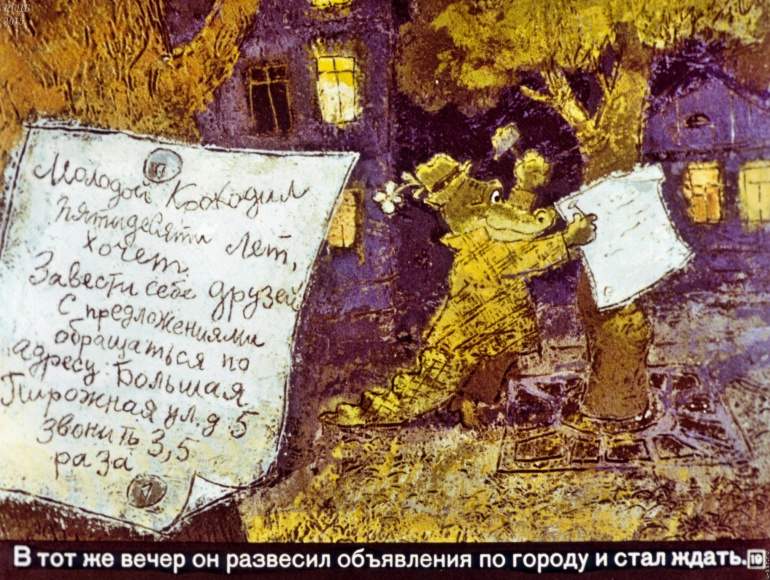 Молодой Крокодил
пятидесяти лет,
хочет
Завести себе друзей
С предложениями
обращаться по
адресу: Большая
Пирожная ул. д 5
звонить 3,5
раза
В тот же вечер он развесил объявления по городу и стал ждать.
19